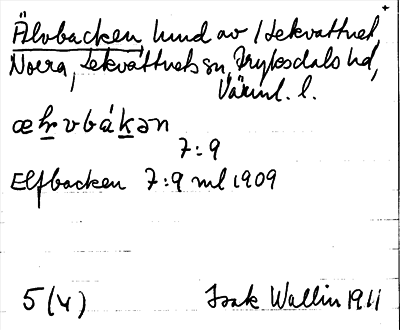 Älvbacken, lund av Lekvattnet,
Norra, Lekvattnets sn, Fryksdals hd,
Värml. l.
æɽvbákən
7:9
Elfbacken 7:9 ml 1909
5(4) Isak Wallin 1911